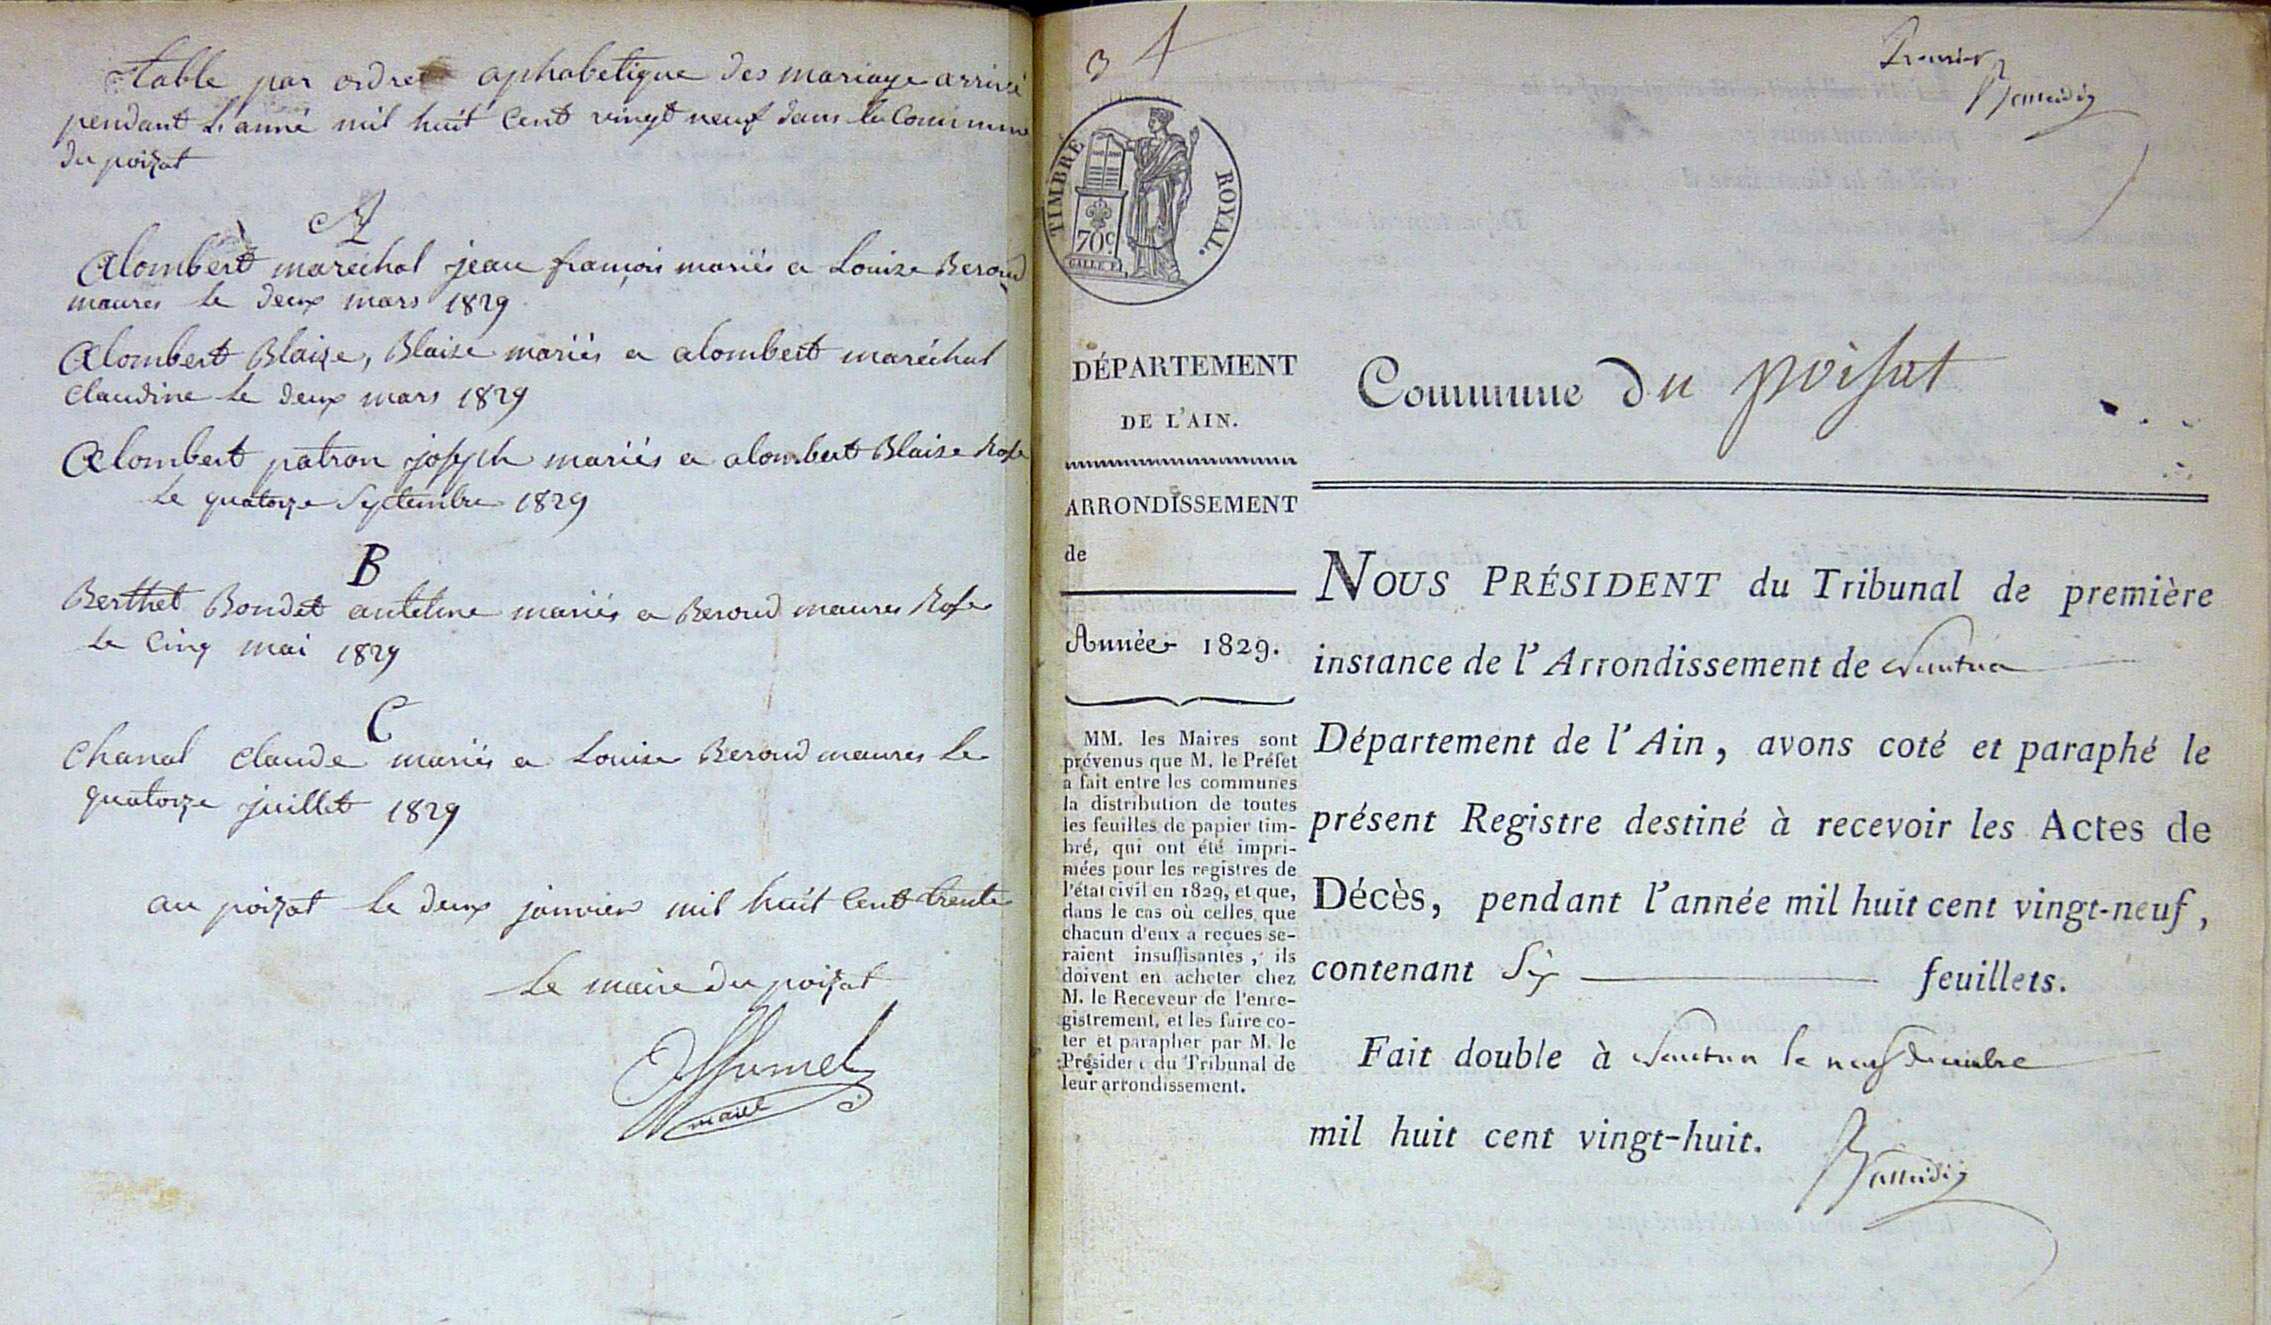 table par ordre aphabetique des mariage arrivé
pendant l'anné mil huit cent vingt neuf dans la Commune
du poizat
A
Alombert maréchal jean françois mariés a Louize Beroud
maures le deux mars 1829
Alombert Blaize, Blaize mariés a alombert maréchal
claudine le deux mars 1829
Alombert patron joseph mariés a alombert Blaize Rose
le quatorze Septembre 1829
B
Berthet Bondet antelme mariés a Beroud maures Rose
le cinq mai 1829
C
Chanal claude mariés a Louize Beroud maures le
quatorze juillet 1829
au poizat le deux janvier mil huit cent trente
Le maire du poizat
maire
3
Premier
TIMBRE ROYAL.
70c
DÉPARTEMENT
DE L'AIN.
ARRONDISSEMENT
de
Année 1829.
MM. les Maires sont
prévenus que M. le Préfet
a fait entre les communes
la distribution de toutes
les feuilles de papier tim-
bré, qui ont été impri-
mées pour les registres de
l'état civil en 1829, et que,
dans le cas où celles que
chacun d'eux a reçues se-
raient insuffisantes, ils
doivent en acheter chez
M. le Receveur de l'enre-
gistrement, et les faire co-
ter et parapher par M. le
Président du Tribunal de
leur arrondissement.
Commune du poisat
NOUS PRÉSIDENT du Tribunal de première
instance de l'Arrondissement de Nantua
Département de l'Ain, avons coté et paraphé le
présent Registre destiné à recevoir les Actes de
Décès, pendant l'année mil huit cent vingt-neuf,
contenant Six feuillets.
Fait double à Nantua le neuf Decembre
mil huit cent vingt-huit.